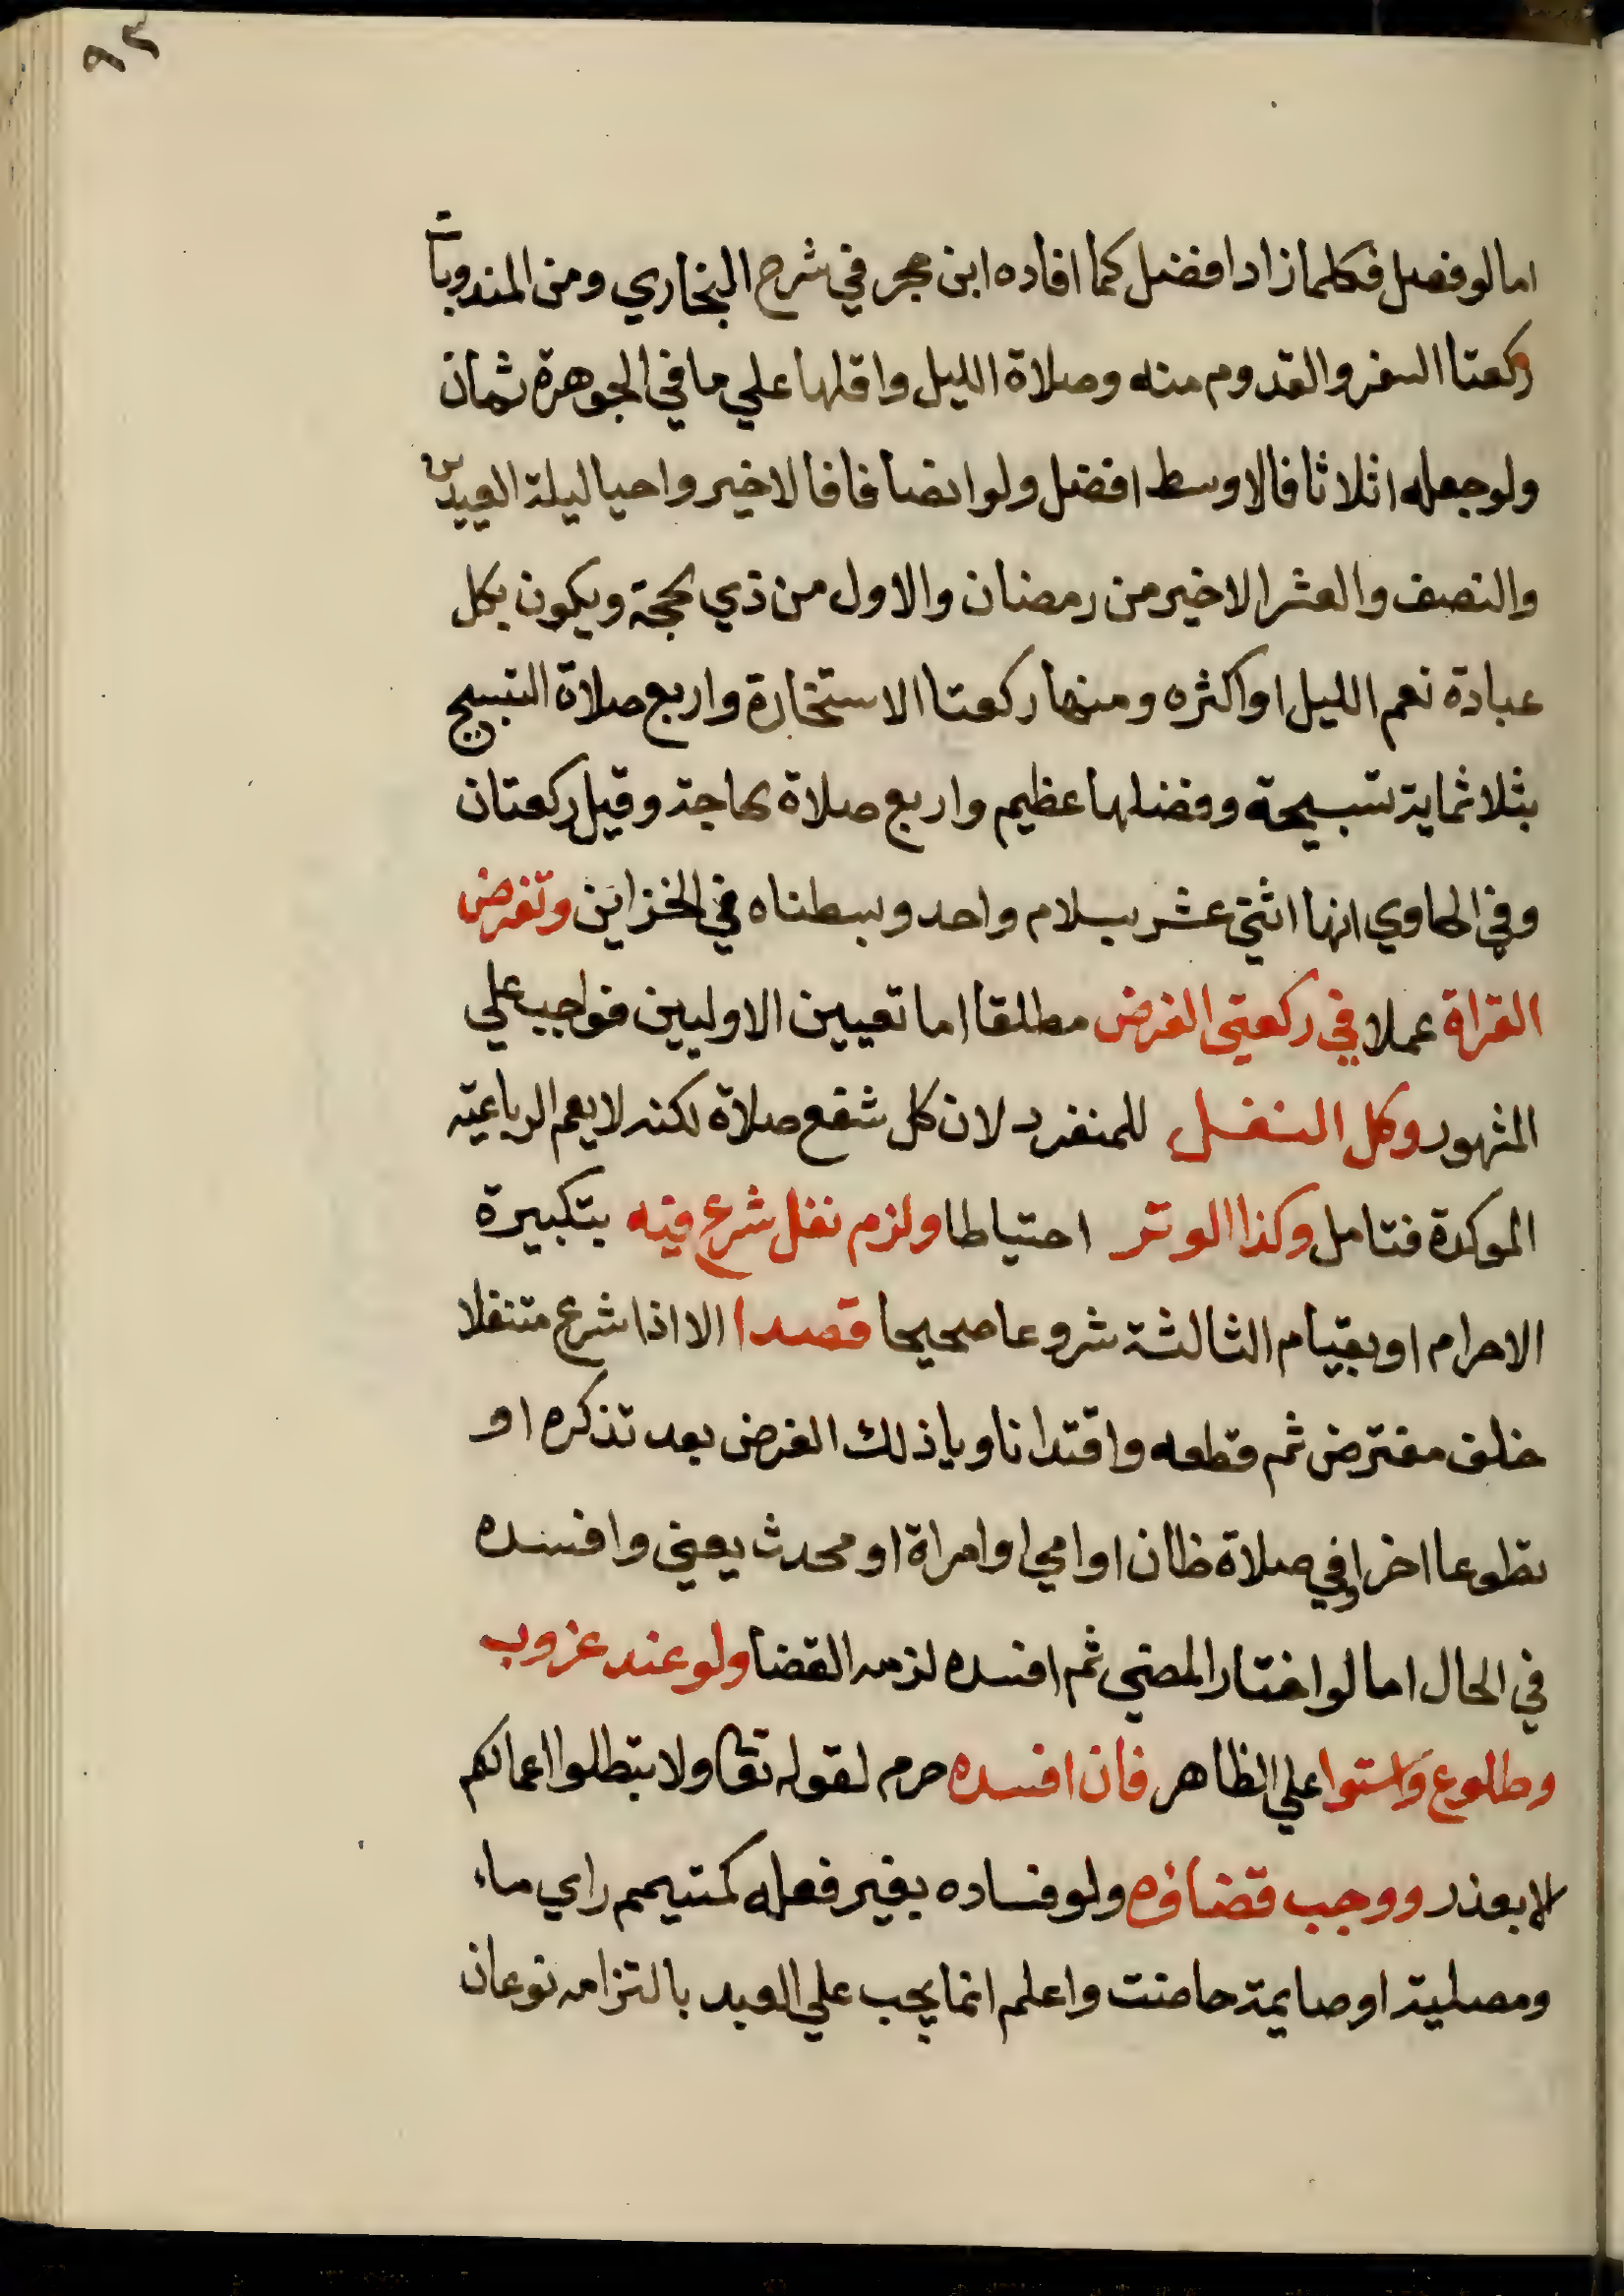 ٩٣
اما لو فصل فكلما زاد افضل كما افاده ابن حجر في شرح البخاري ومن المندوبات
ركعتا السفر والقدوم منه وصلاة الليل واقلها علي ما في الجوهرة ثمان
ولو جعله اثلاثا فالاوسط افضل ولو انصافا فالاخير واحيا ليلة العيدين
والنصف والعشر الاخير من رمضان والاول من ذي لحجة ويكون بكل
عبادة نعم الليل او اكثره ومنها ركعتا الاستخارة واربع صلاة التسبيح
بثلاثماية تسبيحة وفضلها عظيم واربع صلاة لحاجة وقيل ركعتان
وفي الحاوي انها اثنتي عشر بسلام واحد وبسطناه في الخزاين وتفرض
القراة عملا في ركعتي الفرض مطلقا اما تعيين الاوليين فواجب علي
المشهور وكل النفل للمنفرد لان كل شفع صلاة لكنه لا يعم الرباعية
الموكدة فتامل وكذا الوتر احتياطا ولزم نفل شرع فيه بتكبيرة
الاحرام او بقيام الثالثة شروعا صحيحا قصدا الا اذا شرع متنفلا
خلف مفترض ثم قطعه واقتدا ناويا ذلك الفرض بعد تذكره او
تطوعا اخر او في صلاة ظان او امي او امراة او محدث يعني وافسده
في الحال اما لو اختار المضي ثم افسده لزمه القضا ولو عند غروب
وطلوع واستوا علي الظاهر فان افسده حرم لقوله تعا ولا تبطلوا اعمالكم
الا بعذر ووجب قضاؤه ولو فساده بغير فعله كمتيمم راي ماء
ومصلية او صايمة حاضت واعلم انما يجب علي العبد بالتزامه نوعان